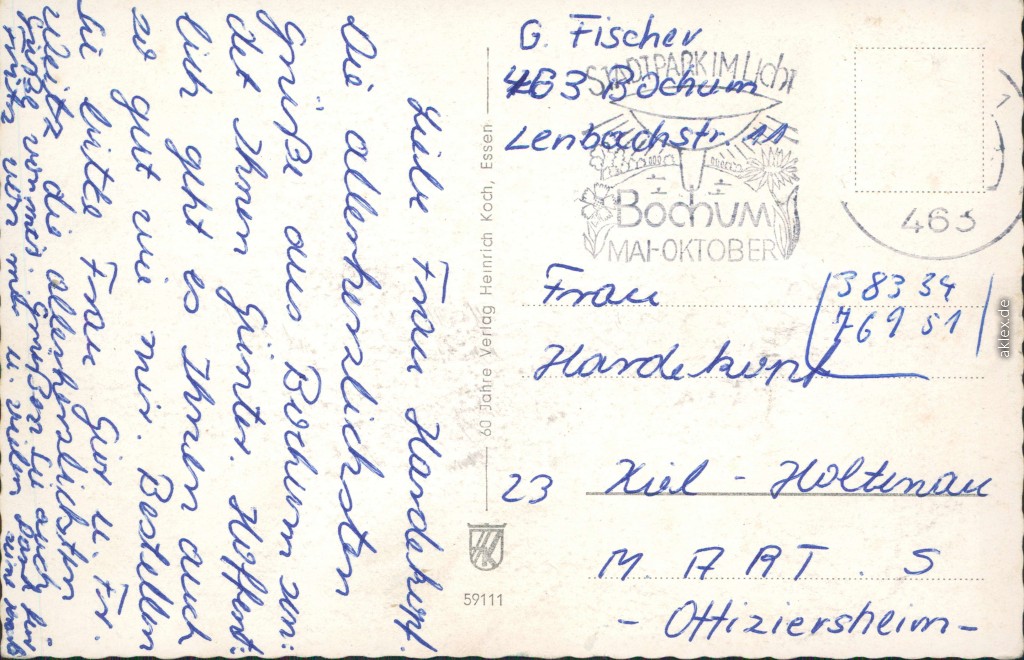 G. Fischer
463 Bochum
Lenbachstr. 11
STADTPARK IM Licht
Bochum
MAI-OKTOBER
463
Frau
Hardekopf
38334
76951
23 Kiel - Holtenau
M. A R T. S
- Offiziersheim -
60 Jahre Verlag Heinrich Koch, Essen
HK
59111
Liebe Frau Hardekopf.
Die allerherzlichsten
Grüße aus Bochum sen:
det Ihnen Günter. Hoffent:
lich geht es Ihnen auch
so gut wie mir. Bestellen
Sie bitte Frau Gior u. Fr.
Weitz die allerherzlichsten
Grüße von mir. Grüßen Sie auch
von mir u. vielen Dank für
aklex.de